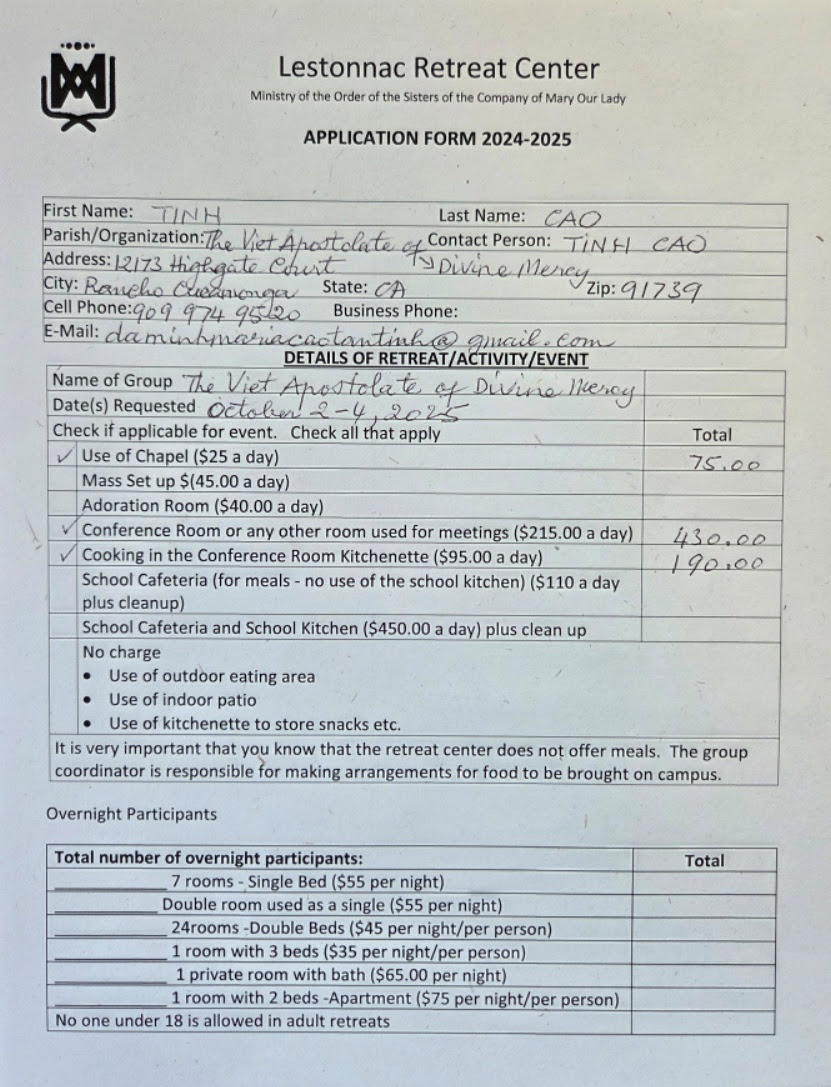 Lestonnac Retreat Center
Ministry of the Order of the Sisters of the Company of Mary Our Lady
APPLICATION FORM 2024-2025
First Name: TINH Last Name: CAO
Parish/Organization: The Viet Apostolate of Contact Person: TINH CAO
Address: 12173 Highgate Court Divine Mercy
City: Rancho Cucamonga State: CA Zip: 91739
Cell Phone: 909 974 9520 Business Phone:
E-Mail: daminhmariacaotantinh@gmail.com
DETAILS OF RETREAT/ACTIVITY/EVENT
Name of Group The Viet Apostolate of Divine Mercy
Date(s) Requested October 2-4, 2025
Check if applicable for event. Check all that apply Total
✓ Use of Chapel ($25 a day) 75.00
Mass Set up $(45.00 a day)
Adoration Room ($40.00 a day)
✓ Conference Room or any other room used for meetings ($215.00 a day) 430.00
✓ Cooking in the Conference Room Kitchenette ($95.00 a day) 190.00
School Cafeteria (for meals - no use of the school kitchen) ($110 a day
plus cleanup)
School Cafeteria and School Kitchen ($450.00 a day) plus clean up
No charge
• Use of outdoor eating area
• Use of indoor patio
• Use of kitchenette to store snacks etc.
It is very important that you know that the retreat center does not offer meals. The group
coordinator is responsible for making arrangements for food to be brought on campus.
Overnight Participants
Total number of overnight participants: Total
____________ 7 rooms - Single Bed ($55 per night)
____________ Double room used as a single ($55 per night)
____________ 24rooms -Double Beds ($45 per night/per person)
____________ 1 room with 3 beds ($35 per night/per person)
____________ 1 private room with bath ($65.00 per night)
____________ 1 room with 2 beds -Apartment ($75 per night/per person)
No one under 18 is allowed in adult retreats